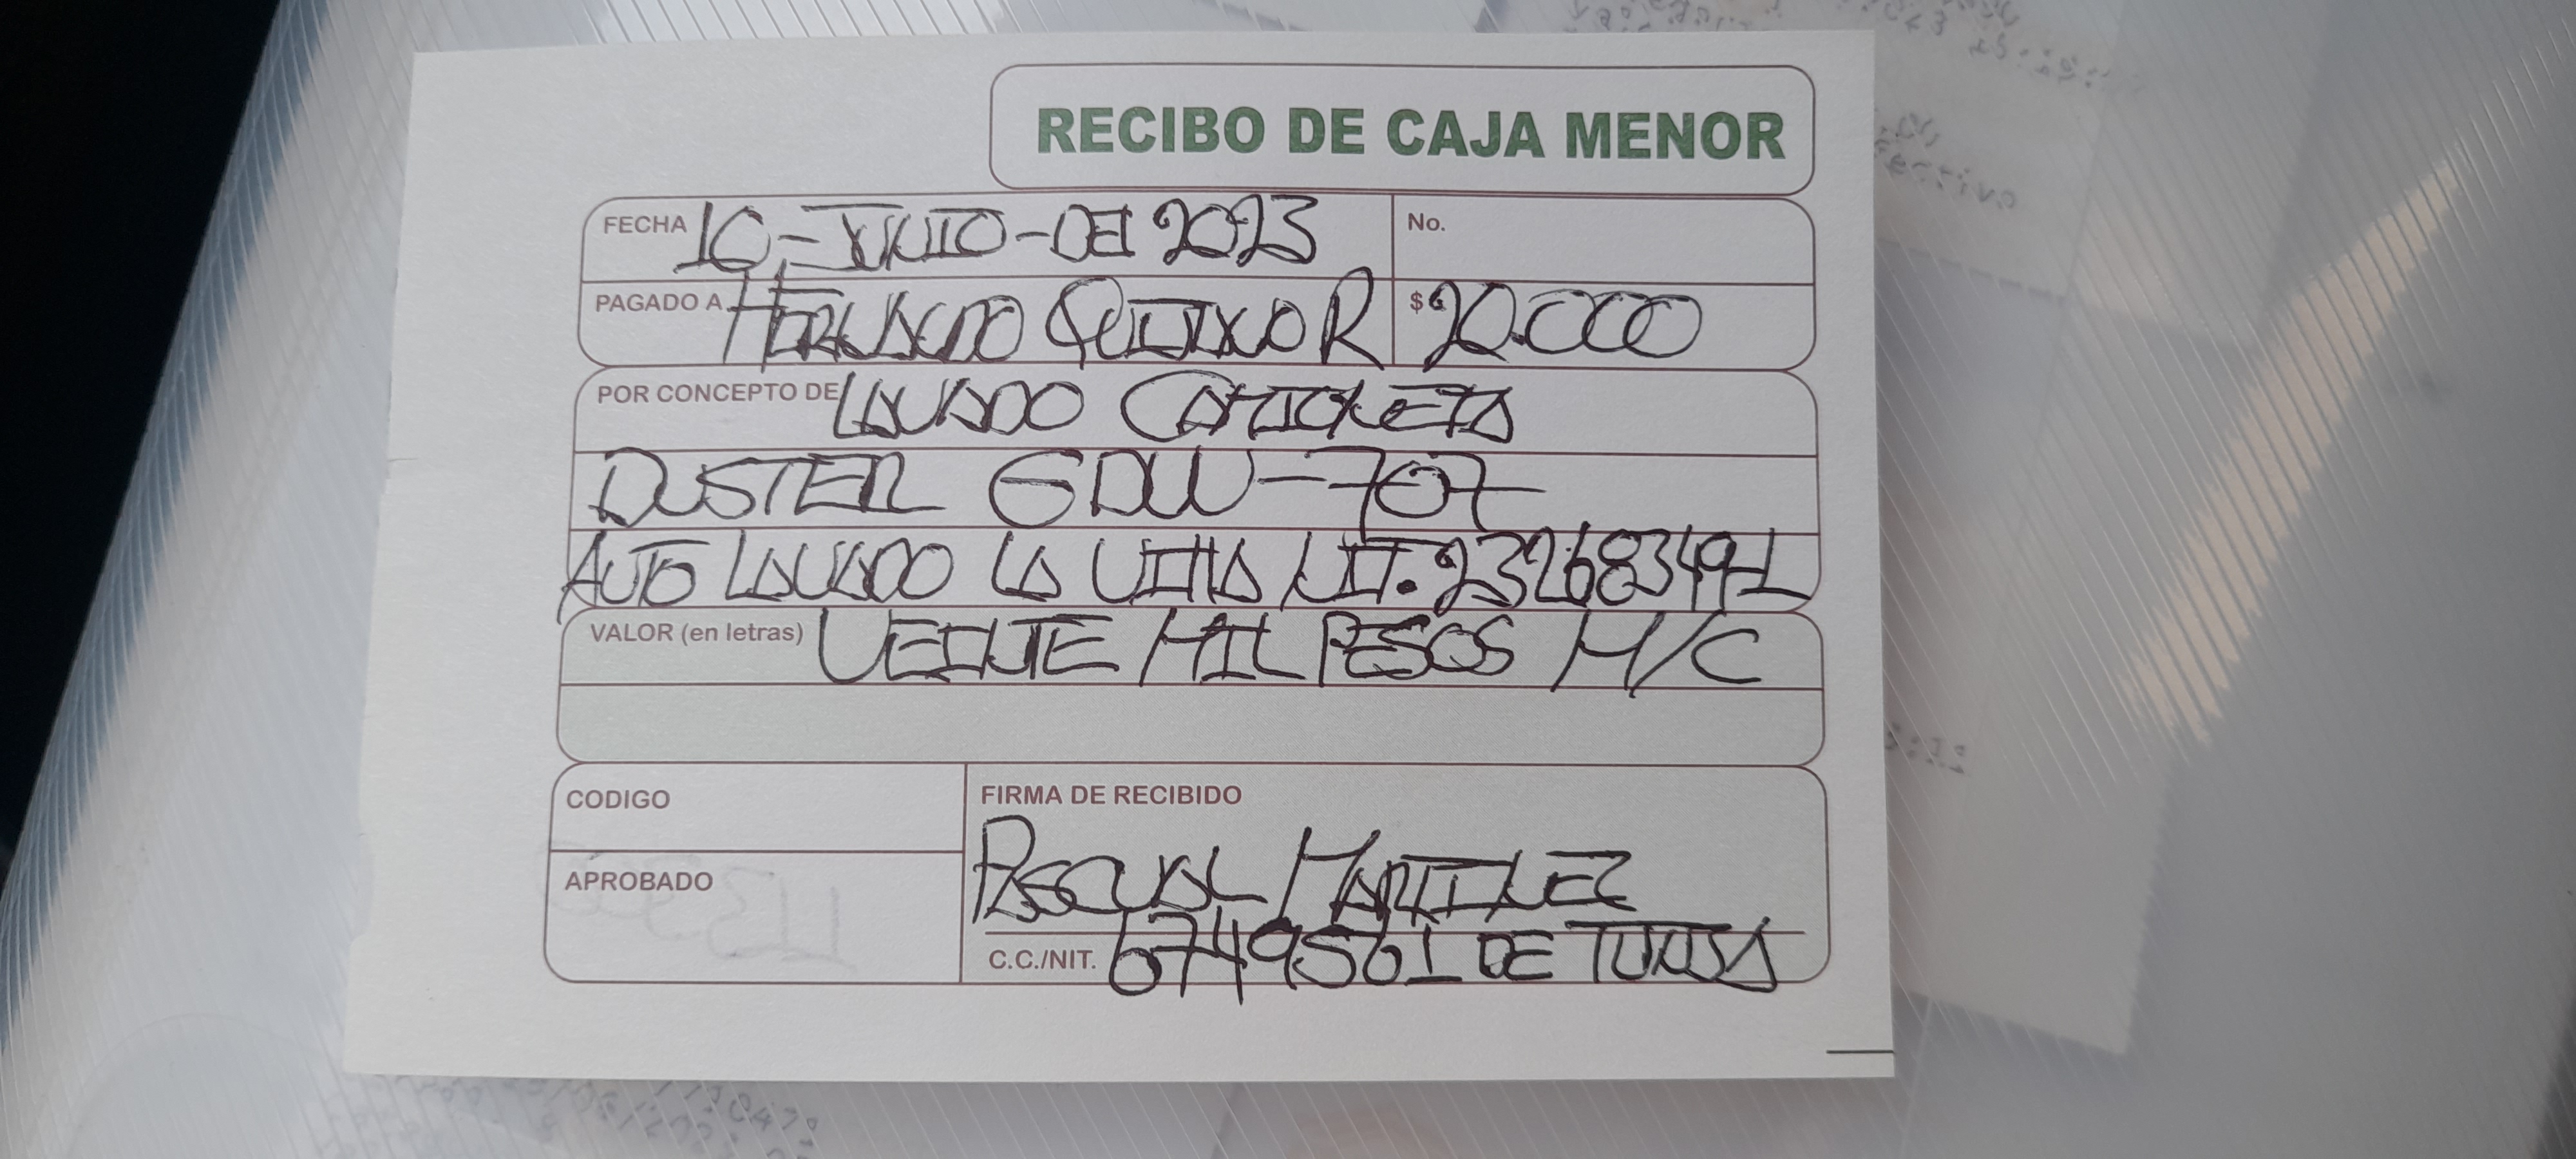 RECIBO DE CAJA MENOR
FECHA 16 - JUNIO - DEL 2023 No.
PAGADO A HERNANDO QUIJANO R $ 20.000
POR CONCEPTO DE LAVADO CAMIONETA
DUSTER GDW-707
AUTO LAVADO LA VILLA NIT. 23268349-1
VALOR (en letras) VEINTE MIL PESOS M/C
CODIGO
APROBADO
FIRMA DE RECIBIDO
PASCUAL MARTINEZ
C.C./NIT. 6749561 DE TUNJA